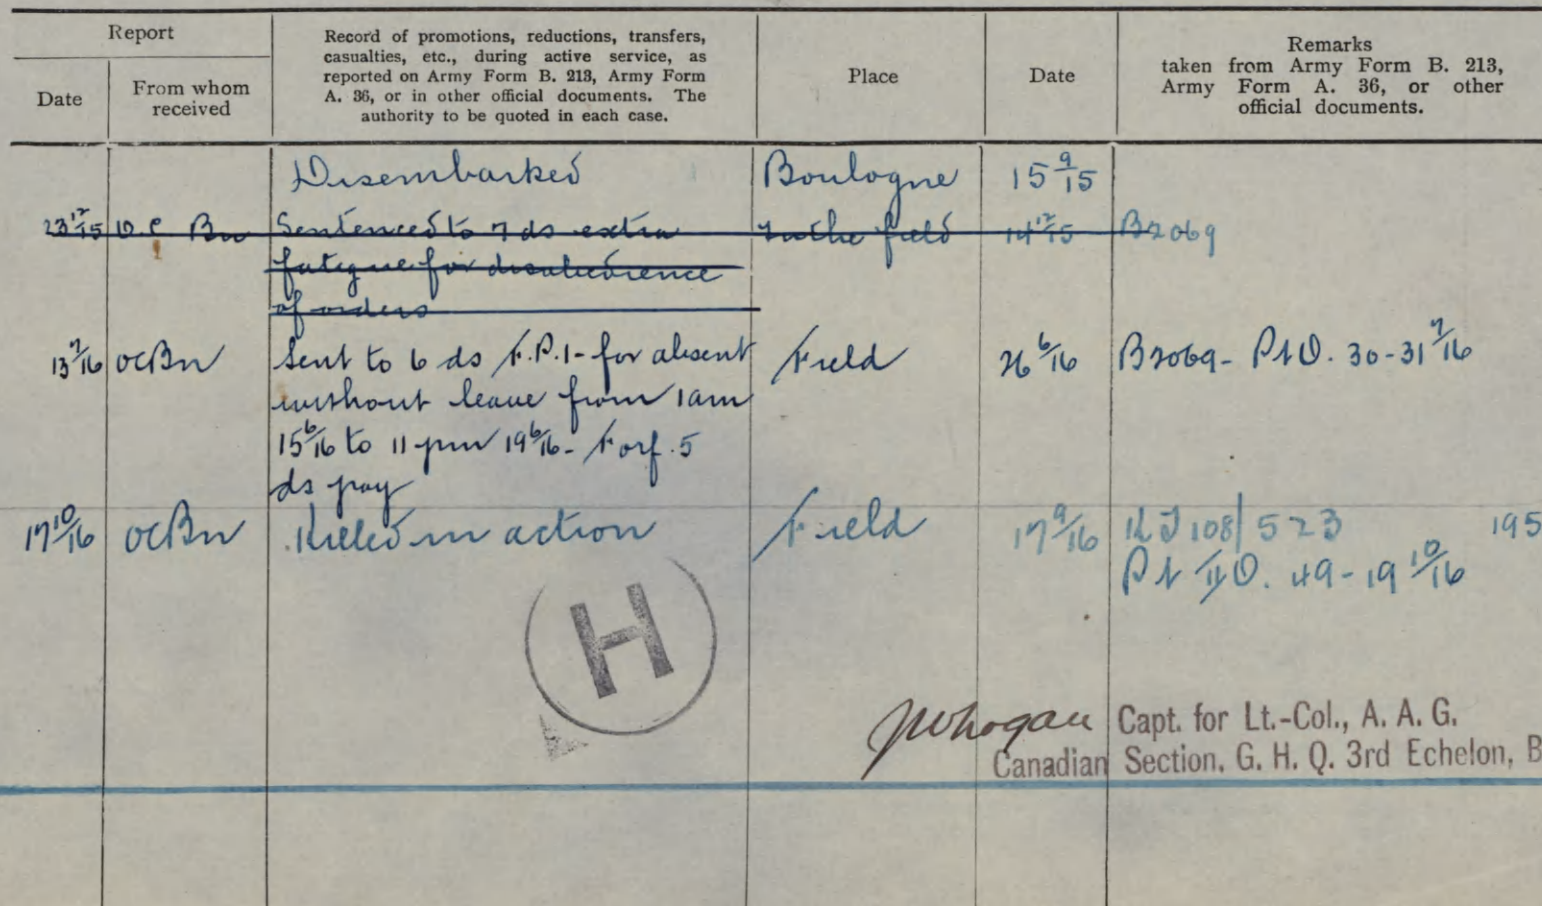 Report
Date
From whom
received
Record of promotions, reductions, transfers,
casualties, etc., during active service, as
reported on Army Form B. 213, Army Form
A. 36, or in other official documents. The
authority to be quoted in each case.
Place
Date
Remarks
taken from Army Form B. 213,
Army Form A. 36, or other
official documents.
Disembarked Boulogne 15 9/15
23 12/15 O.C Bn Sentenced to 7 ds extra In the field 14 12/15 B2069
fatigue for disobedience
of orders
13 7/16 OC Bn Sent to 6 ds F.P.1- for absent Field 26 6/16 B2069- Pt O. 30-31 7/16
without leave from 1am
15 6/16 to 11 pm 19 6/16- Forf. 5
ds pay
17 10/16 OC Bn Killed in action Field 17 9/16 108/523 195
Pt II O. 49-19 10/16
H
Capt. for Lt.-Col., A. A. G.
Canadian Section, G. H. Q. 3rd Echelon, B